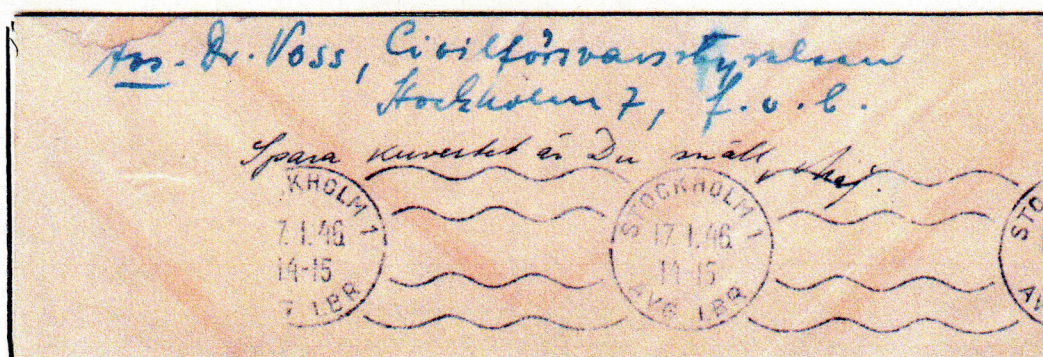 Avs. Dr. Voss, Civilförsvarsstyrelsen
Stockholm 7, f.v.b.
Spara kuvertet är Du snäll,
KHOLM 1
7.1.46
14-15
7 1 BR
STOCKHOLM 1
17.1.46
14-15
AVG 1 BR
STO
AV